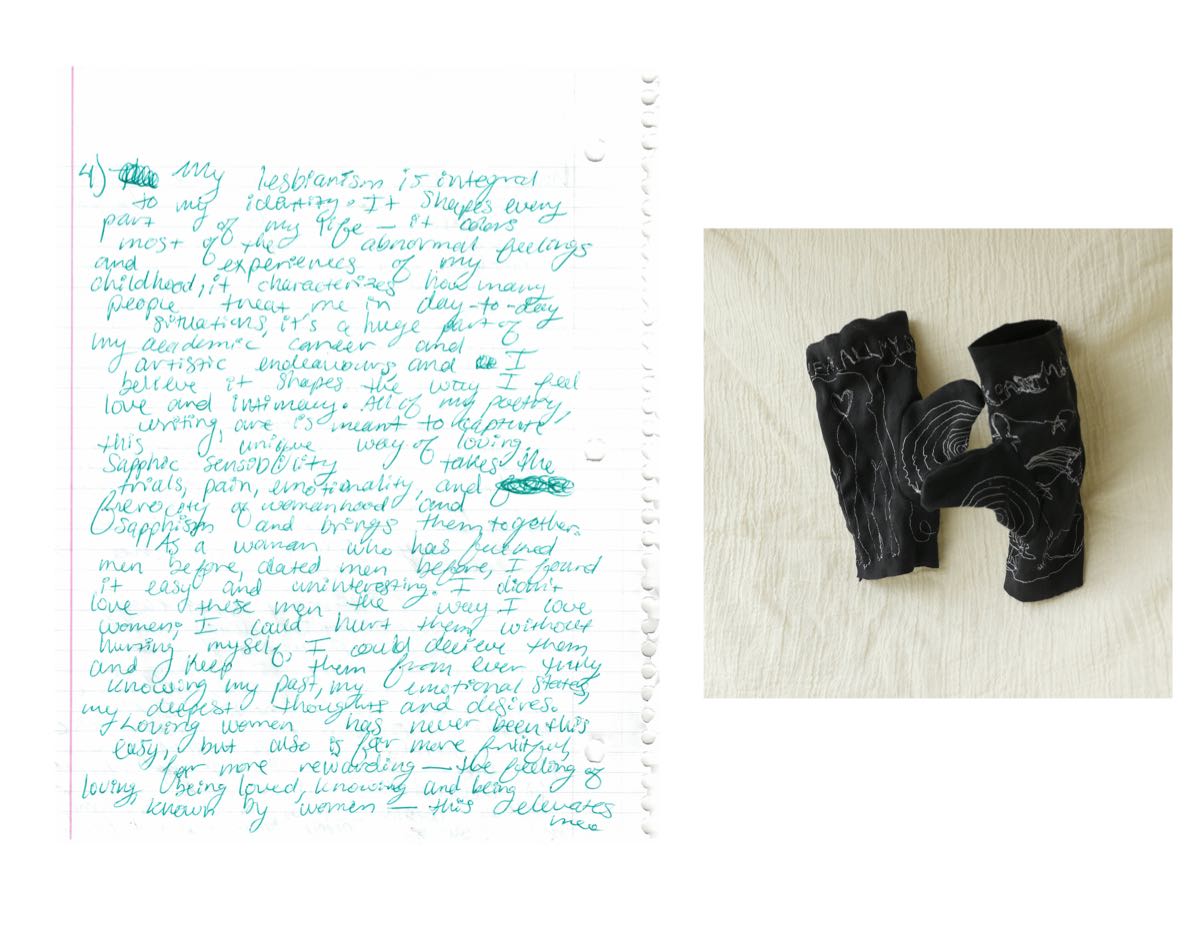 4) My lesbianism is integral
to my identity. It shapes every
part of my life — it colors
most of the abnormal feelings
and experiences of my
childhood, it characterizes how many
people treat me in day-to-day
situations, it's a huge part of
my academic career and
artistic endeavours, and I
believe it shapes the way I feel
love and intimacy. All of my poetry,
writing, art is meant to capture
this unique way of loving.
Sapphic sensibility takes the
trials, pain, emotionality, and
ferocity of womanhood and
Sapphism and brings them together.
As a woman who has
men before, dated men before, I found
it easy and uninteresting. I didn't
love these men the way I love
women; I could hurt them without
hurting myself, I could deceive them
and keep them from ever truly
knowing my past, my emotional states,
my deepest thoughts and desires.
Loving women has never been this
easy, but also is far more fruitful,
far more rewarding — the feeling of
loving, being loved, knowing and being
known by women — this elevates
me